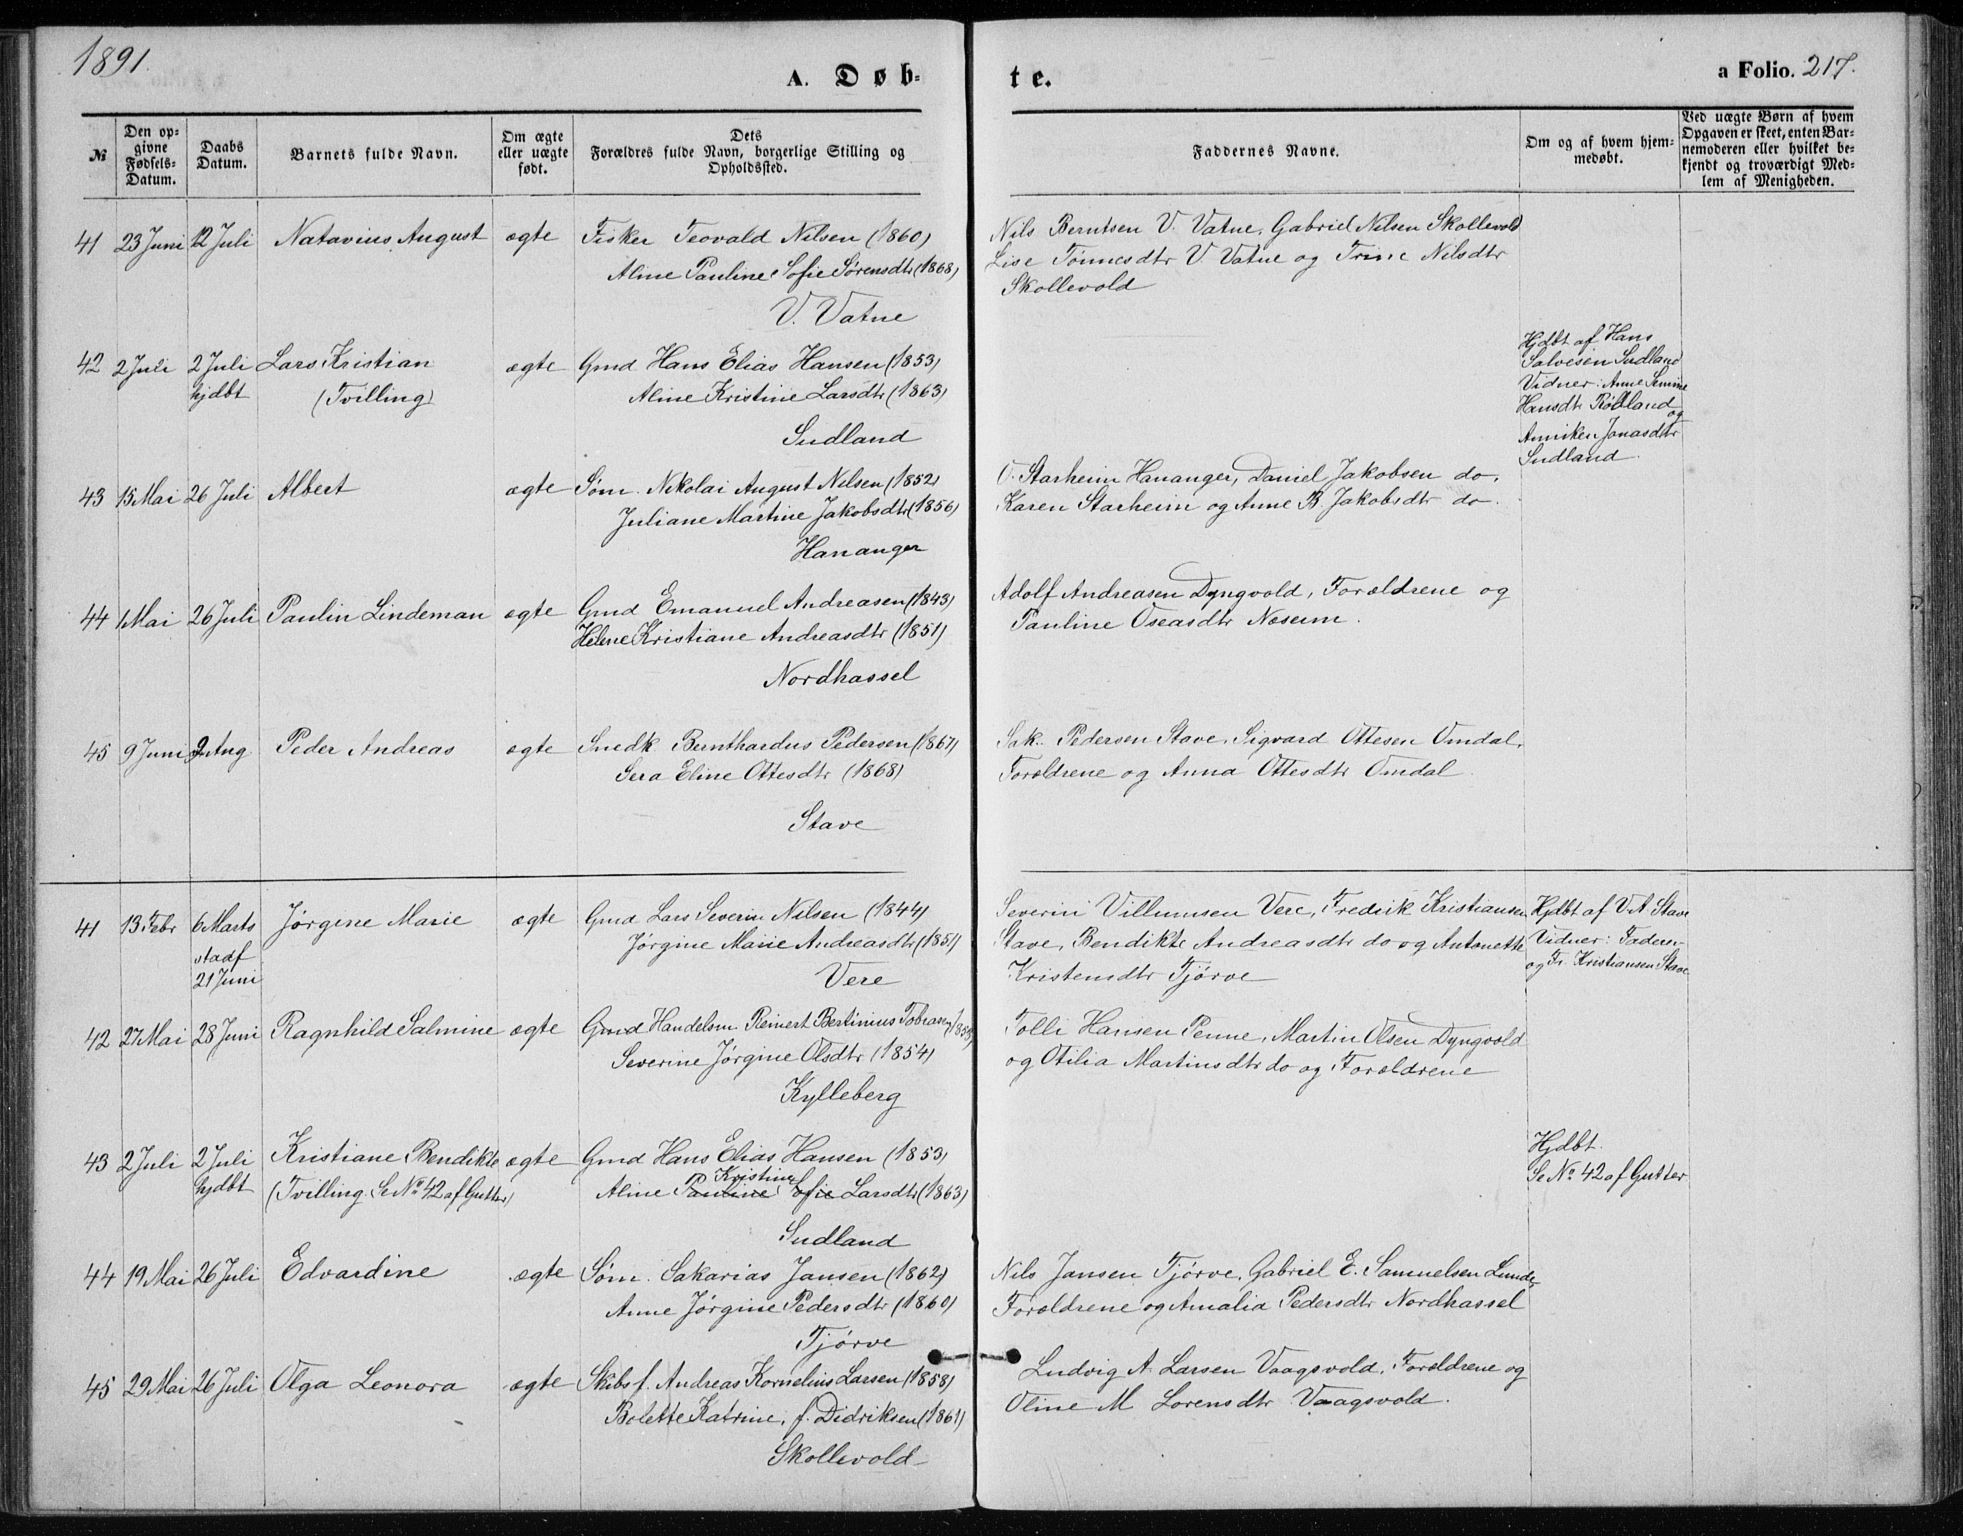 1891.
A. Døb-
te.
a Folio. 217.
№
Den op-
givne
Fødsels-
Datum.
Daabs
Datum.
Barnets fulde Navn.
Om ægte
eller uægte
født.
Dets
Forældres fulde Navn, borgerlige Stilling og
Opholdssted.
Faddernes Navne.
Om og af hvem hjem-
medøbt.
Ved uægte Børn af hvem
Opgaven er skeet, enten Bar-
nemoderen eller hvilket be-
kjendt og troværdigt Med-
lem af Menigheden.
41 23 Juni 12 Juli Natavius August ægte Fisker Teovald Nilsen (1860)
Aline Pauline Sofie Sørensdtr (1868)
V. Vatne
Nils Berntsen V. Vatne, Gabriel Nilsen Skollevold
Lise Tønnesdtr V. Vatne og Trine Nilsdtr
Skollevold
42 2 Juli 2 Juli Lars Kristian ægte Gmd Hans Elias Hansen (1853)
hjdbt (Tvilling) Aline Kristine Larsdtr (1863)
Sudland
Hjdbt af Hans
Salvesen Sudland
Vidner: Anne Semine
Hansdtr Rødland
og
Anniken Jonasdtr
Sudland
43 15 Mai 26 Juli Albert ægte Søm. Nikolai August Nilsen (1852)
Juliane Martine Jakobsdtr (1856)
Hananger
O. Starheim Hananger, Daniel Jakobsen do,
Karen Starheim og Anne B. Jakobsdtr do.
44 1 Mai 26 Juli Paulin Lindeman ægte Gmd Emanuel Andreasen (1843)
Helene Kristiane Andreasdtr (1851)
Nordhassel
Adolf Andreasen Dyngvold, Forældrene og
Pauline Oseasdtr Neseim.
45 9 Juni 2 Aug Peder Andreas ægte Snedk Bernthardus Pedersen (1867)
Sera Eline Ottesdtr (1868)
Stave
Sak. Pedersen Stave, Sigvard Ottesen Omdal,
Forældrene og Anna Ottesdtr Omdal.
41 13 Febr 6 Marts Jørgine Marie ægte Gmd Lars Severin Nilsen (1844)
stadf Jørgine Marie Andreasdtr (1851)
21 Juni
Vere
Severin Villumsen Vere, Fredrik Kristiansen
Stave, Bendikte Andreasdtr do og Antonette
Kristensdtr Tjørve
Hjdbt af V. A. Stave
Vidner: Faderen
og Fr. Kristiansen Stave
42 27 Mai 28 Juni Ragnhild Salmine ægte Gmd Handelsm. Reinert Bertinius Tobiasen (1858)
Severine Jørgine Olsdtr (1854)
Kylleberg
Tolli Hansen Penne, Martin Olsen Dyngvold
og Otilia Martinsdtr do og Forældrene
43 2 Juli 2 Juli Kristiane Bendikte ægte Gmd Hans Elias Hansen (1853)
hjdbt (Tvilling. Se No 42 af Gutter) Kristine
Aline Pauline Sofie Larsdtr (1863)
Sudland
Hjdbt.
Se No 42 af Gutter
44 19 Mai 26 Juli Edvardine ægte Søm. Sakarias Jansen (1862)
Anne Jørgine Pedersdtr (1860)
Tjørve
Nils Jansen Tjørve, Gabriel E. Samuelsen Lunde,
Forældrene og Amalia Pedersdtr Nordhassel
45 29 Mai 26 Juli Olga Leonora ægte Skibsf. Andreas Kornelius Larsen (1858)
Bolette Katrine, f. Didriksen (1861)
Skollevold
Ludvig A. Larsen Vaagsvold, Forældrene og
Oline M Lorensdtr Vaagsvold.